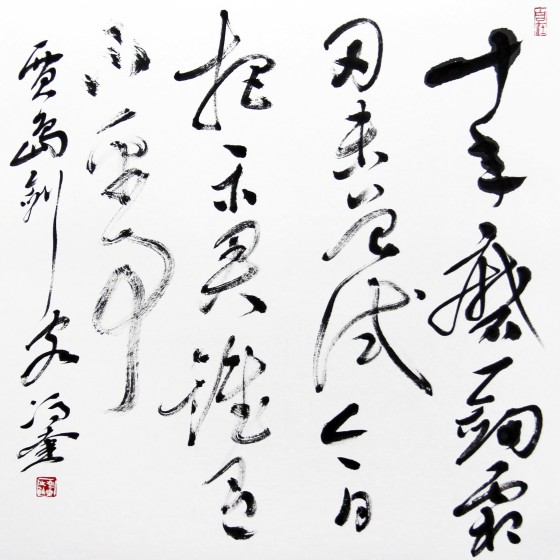 十年磨一劍霜
刃未曾試今日
把示君誰
不平事
賈島劍客 馮